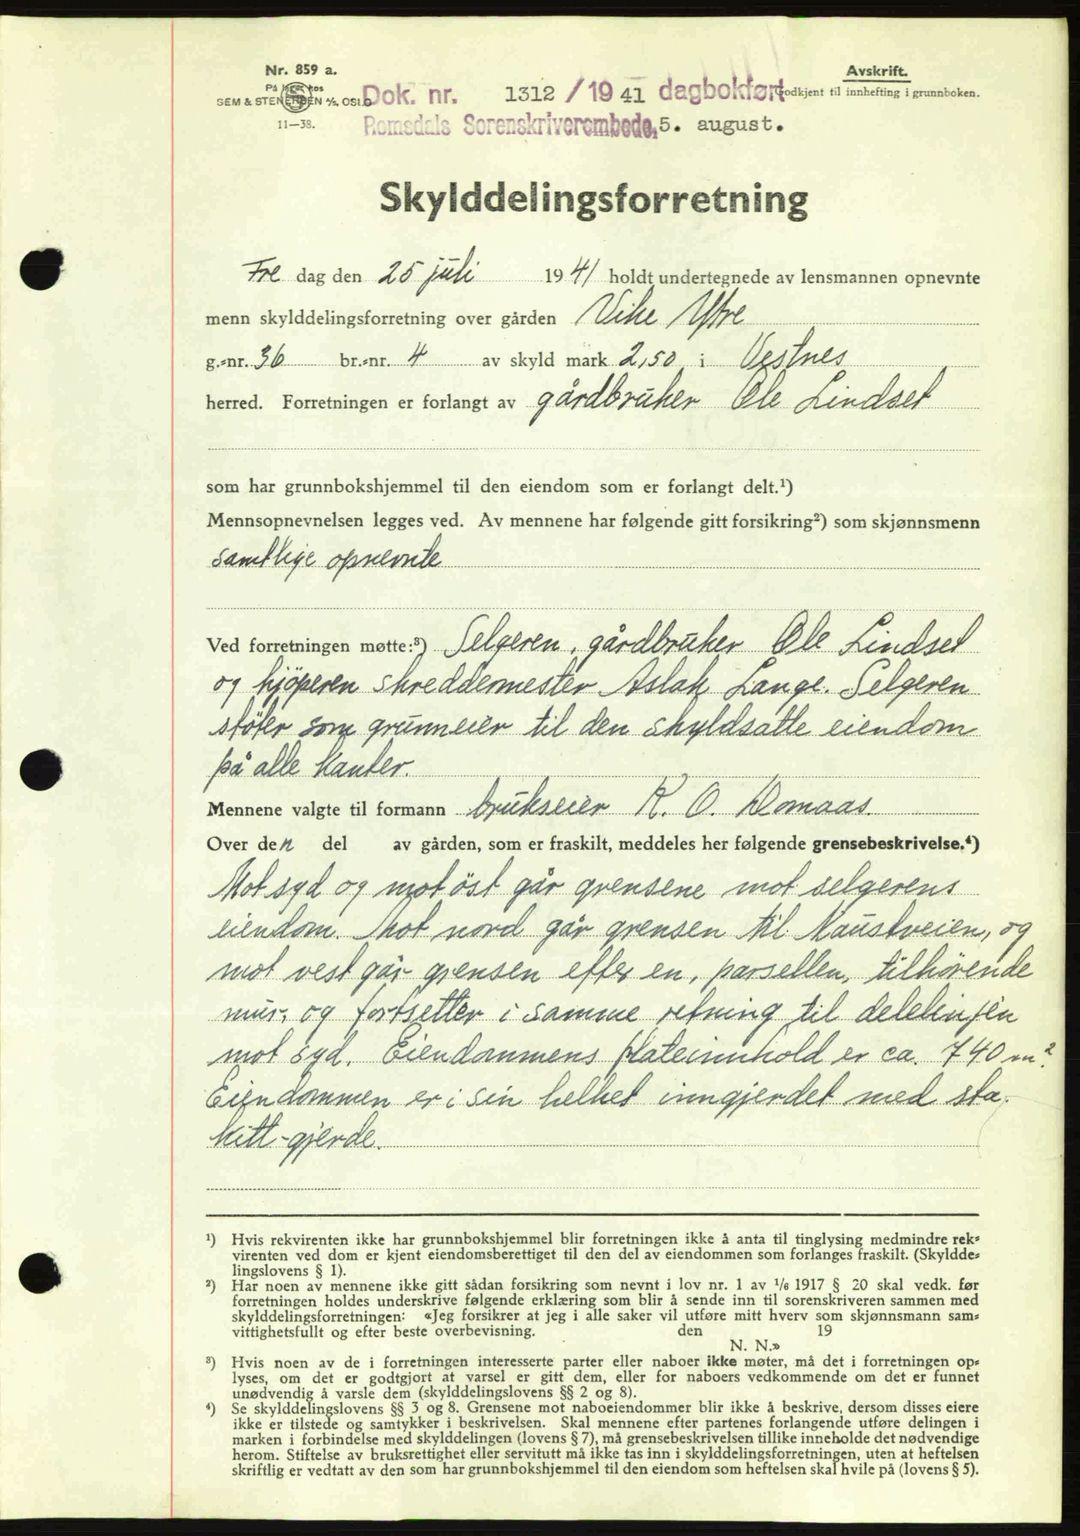 Nr. 859 a.
Avskrift.
På lager hos
SEM & STENERSEN A/S, OSLO
Dok. nr. 1312 / 19 41 dagbokført
Godkjent til innhefting i grunnboken.
11—38.
Romsdals Sorenskriverembede, 5. august.
Skylddelingsforretning
Fre dag den 25 juli 19 41 holdt undertegnede av lensmannen opnevnte
menn skylddelingsforretning over gården Vike Ytre
g.=nr. 36 br.=nr. 4 av skyld mark 2,50 i Vestnes
herred. Forretningen er forlangt av gårdbruker Ole Lindset
som har grunnbokshjemmel til den eiendom som er forlangt delt.¹)
Mennsopnevnelsen legges ved. Av mennene har følgende gitt forsikring²) som skjønnsmenn
samtlige opnevnte
Ved forretningen møtte:³) Selgeren, gårdbruker Ole Lindset
og kjöperen skreddermester Aslak Lange. Selgeren
støter som grunneier til den skyldsatte eiendom
på alle kanter.
Mennene valgte til formann brukseier K. O. Womaas.
Over den del av gården, som er fraskilt, meddeles her følgende grensebeskrivelse.⁴)
Mot syd og mot öst går grensene mot selgerens
eiendom. Mot nord går grensen til Naustveien, og
mot vest går grensen efter en, parsellen, tilhörende
mur, og fortsetter i samme retning til delelinjen
mot syd. Eiendommens flateinnhold er ca. 740 m².
Eiendommen er i sin helhet inngjerdet med sta-
kitt-gjerde.
¹) Hvis rekvirenten ikke har grunnbokshjemmel blir forretningen ikke å anta til tinglysing medmindre rek=
virenten ved dom er kjent eiendomsberettiget til den del av eiendommen som forlanges fraskilt. (Skyldde=
lingslovens § 1).
²) Har noen av mennene ikke gitt sådan forsikring som nevnt i lov nr. 1 av 1/6 1917 § 20 skal vedk. før
forretningen holdes underskrive følgende erklæring som blir å sende inn til sorenskriveren sammen med
skylddelingsforretningen: «Jeg forsikrer at jeg i alle saker vil utføre mitt hverv som skjønnsmann sam=
vittighetsfullt og efter beste overbevisning. den 19
N. N.»
³) Hvis noen av de i forretningen interesserte parter eller naboer ikke møter, må det i forretningen op=
lyses, om det er godtgjort at varsel er gitt dem, eller for naboers vedkommende om det er funnet
unødvendig å varsle dem (skylddelingslovens §§ 2 og 8).
⁴) Se skylddelingslovens §§ 3 og 8. Grensene mot naboeiendommer blir ikke å beskrive, dersom disses eiere
ikke er tilstede og samtykker i beskrivelsen. Skal mennene efter partenes forlangende utføre delingen i
marken i forbindelse med skylddelingen (lovens § 7), må grensebeskrivelsen tillike inneholde det nødvendige
herom. Stiftelse av bruksrettighet eller servitutt må ikke tas inn i skylddelingsforretningen, uten at heftelsen
skriftlig er vedtatt av den som har grunnbokshjemmel til den eiendom som heftelsen skal hvile på (lovens § 5).